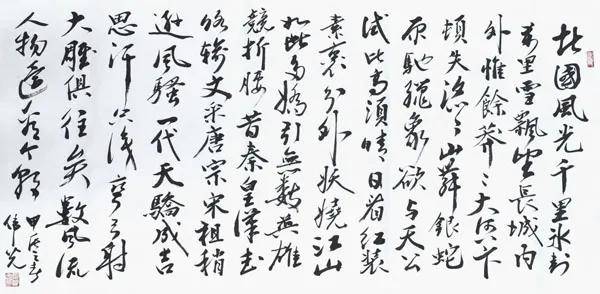 北國風光千里冰封
萬里雪飄望長城内
外惟餘莽々大河上下
頓失滔々山舞銀蛇
原馳臘象欲与天公
試比高須晴日看红装
素裹分外妖嬈江山
如此多嬌引無數英雄
競折腰昔秦皇漢武
略輸文采唐宗宋祖稍
遜風騷一代天驕成吉
思汗只識彎弓射
大雕俱往矣數風流
人物還看今朝
甲之春
偉光